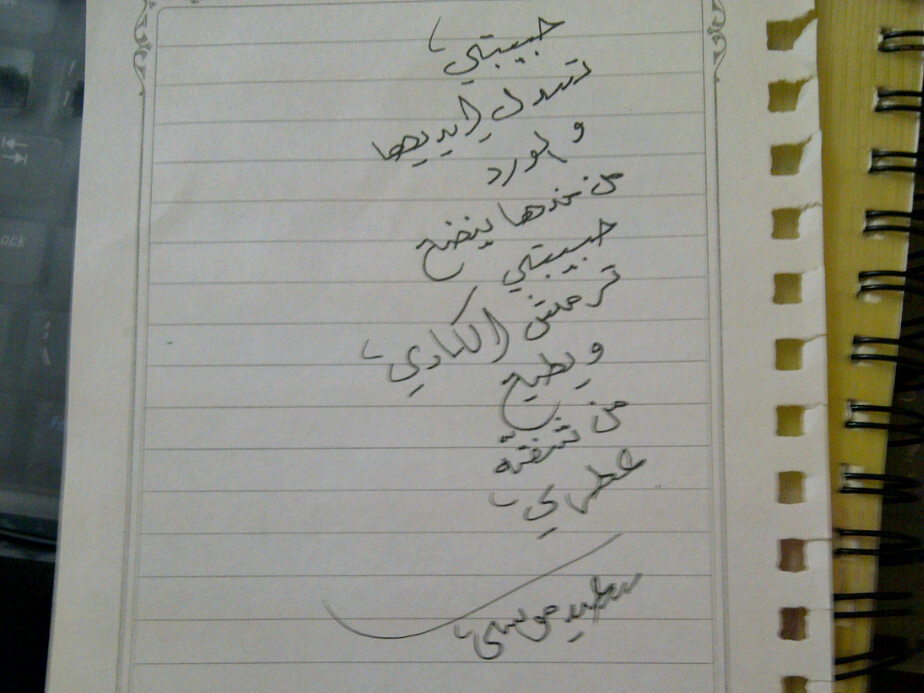 حبيبتي
تسدل ايديها
و الورد
من يدها ينضح
حبيبتي
ترمش الكادي
و يطيح
من شفته
عطري
موسى